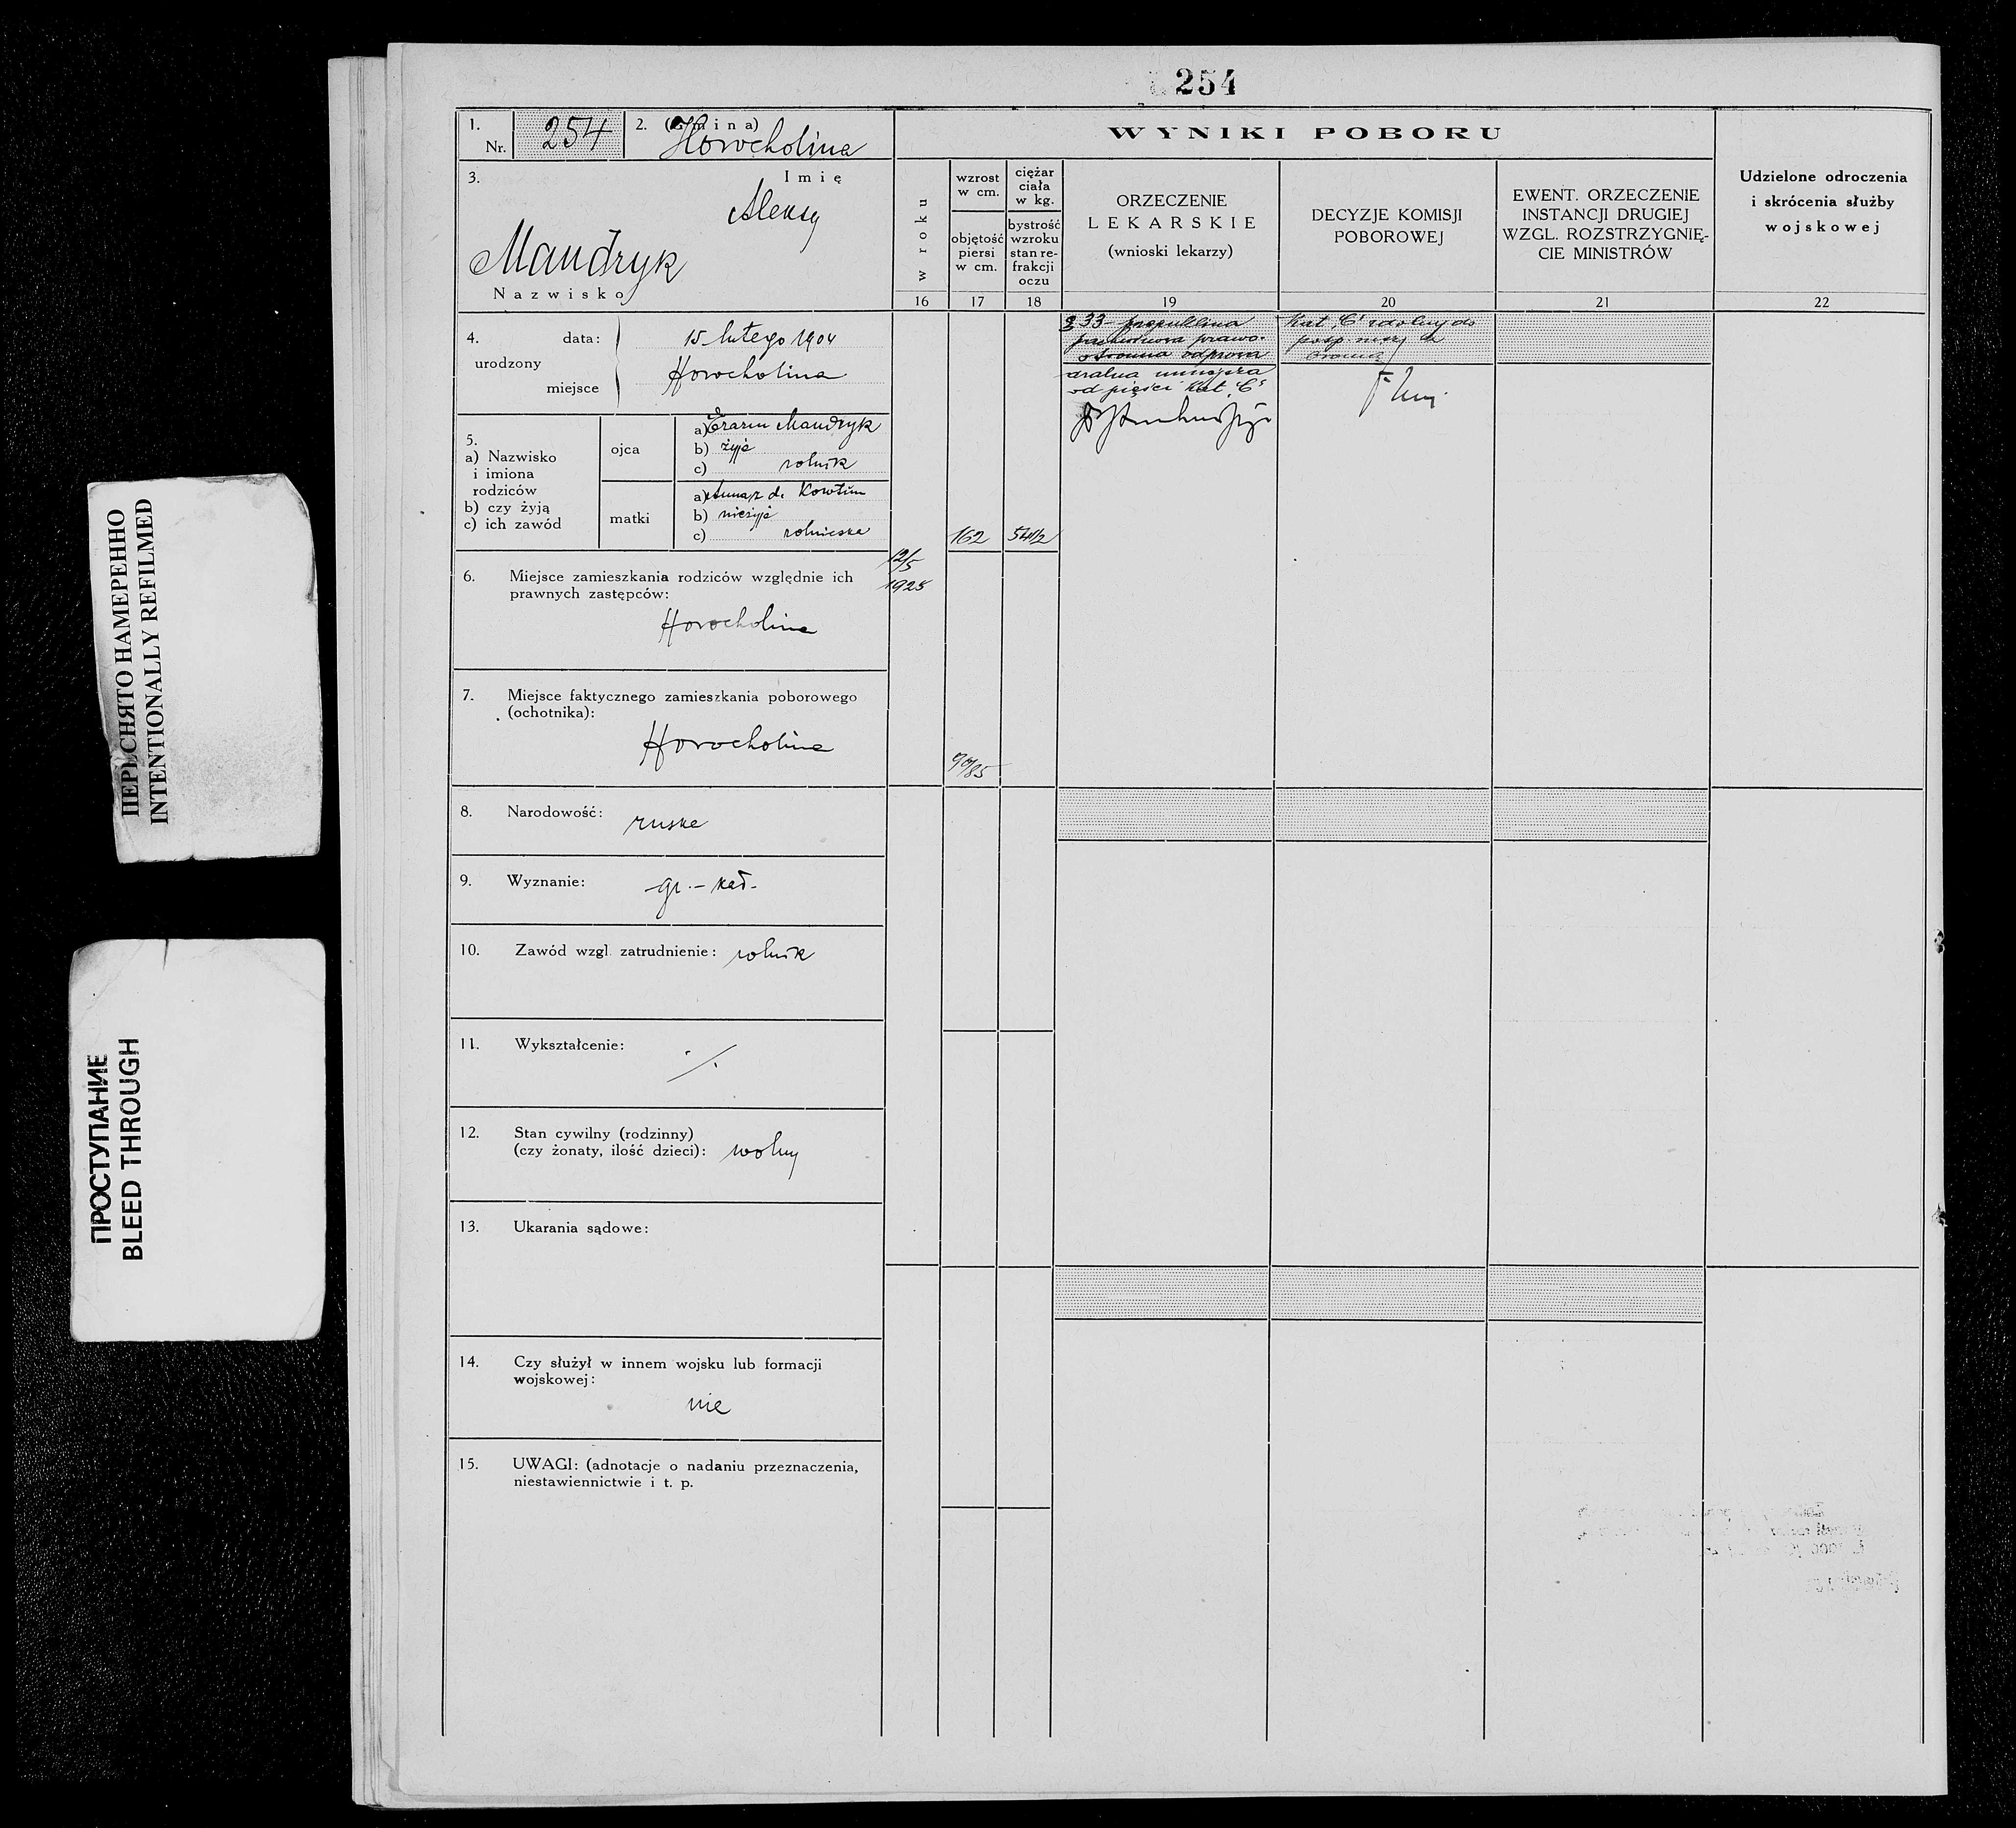 254
1.
Nr. 254
2. (Gmina)
Horocholina
3.
Imię
Aleksy
Mandryk
Nazwisko
4.
urodzony
data: 15 lutego 1904
miejsce Horocholina
5.
a) Nazwisko
i imiona
rodziców
b) czy żyją
c) ich zawód
ojca
a) Erazm Mandryk
b) żyje
c) rolnik
matki
a) Anna z d.
b) nieżyje
c) rolniczka
6. Miejsce zamieszkania rodziców względnie ich
prawnych zastępców:
Horocholina
7. Miejsce faktycznego zamieszkania poborowego
(ochotnika):
Horocholina
8. Narodowość: ruska
9. Wyznanie: gr.-kat.
10. Zawód wzgl. zatrudnienie: rolnik
11. Wykształcenie: ./.
12. Stan cywilny (rodzinny)
(czy żonaty, ilość dzieci): wolny
13. Ukarania sądowe:
14. Czy służył w innem wojsku lub formacji
wojskowej:
nie
15. UWAGI: (adnotacje o nadaniu przeznaczenia,
niestawiennictwie i t. p.
WYNIKI POBORU
W roku
16
12/5
1925
wzrost
w cm.
objętość
piersi
w cm.
17
162
90/85
ciężar
ciała
w kg.
bystrość
wzroku
stan re-
frakcji
oczu
18
54 1/2
ORZECZENIE
LEKARSKIE
(wnioski lekarzy)
19
§ 33 przepuklina
pachwinowa prawo-
stronna odprowa
dzalna mniejsza
od pięści kat. "C"
DECYZJE KOMISJI
POBOROWEJ
20
Kat. "C" zdolny do
posp. rusz. z
bronią
EWENT. ORZECZENIE
INSTANCJI DRUGIEJ
WZGL. ROZSTRZYGNIĘ-
CIE MINISTRÓW
21
Udzielone odroczenia
i skrócenia służby
wojskowej
22
ПЕРЕСНЯТО НАМЕРЕННО
INTENTIONALLY REFILMED
ПРОСТУПАНИЕ
BLEED THROUGH